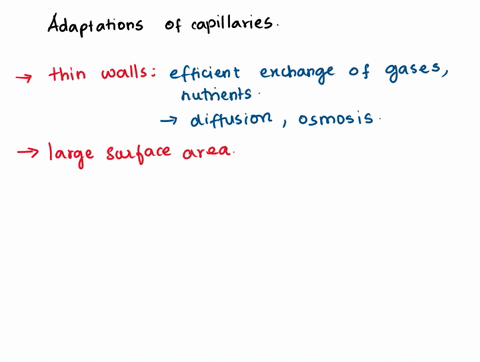 Adaptations of capillaries.
→ thin walls: efficient exchange of gases,
nutrients.
→ diffusion, osmosis.
→ large surface area.